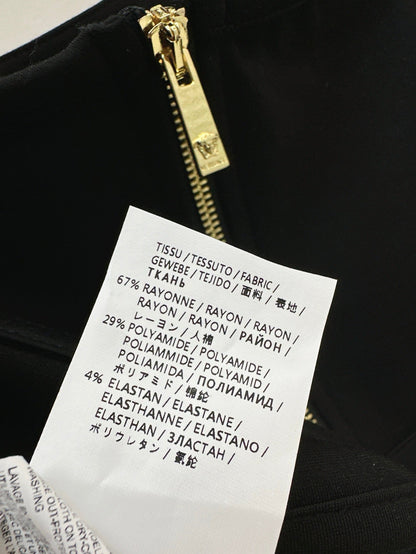 TISSU / TESSUTO / FABRIC /
GEWEBE / TEJIDO / 面料 / 表地 /
ТКАНЬ
67% RAYONNE / RAYON / RAYON /
RAYON / RAYON / РАЙОН /
レーヨン / 人棉
29% POLYAMIDE / POLYAMIDE /
POLIAMMIDE / POLYAMID /
POLIAMIDA / ПОЛИАМИД /
ポリアミド / 锦纶
4% ELASTAN / ELASTANE /
ELASTHANNE / ELASTANO /
ELASTHAN / ЭЛАСТАН /
ポリウレタン / 氨纶
LAVAGE
WASHING